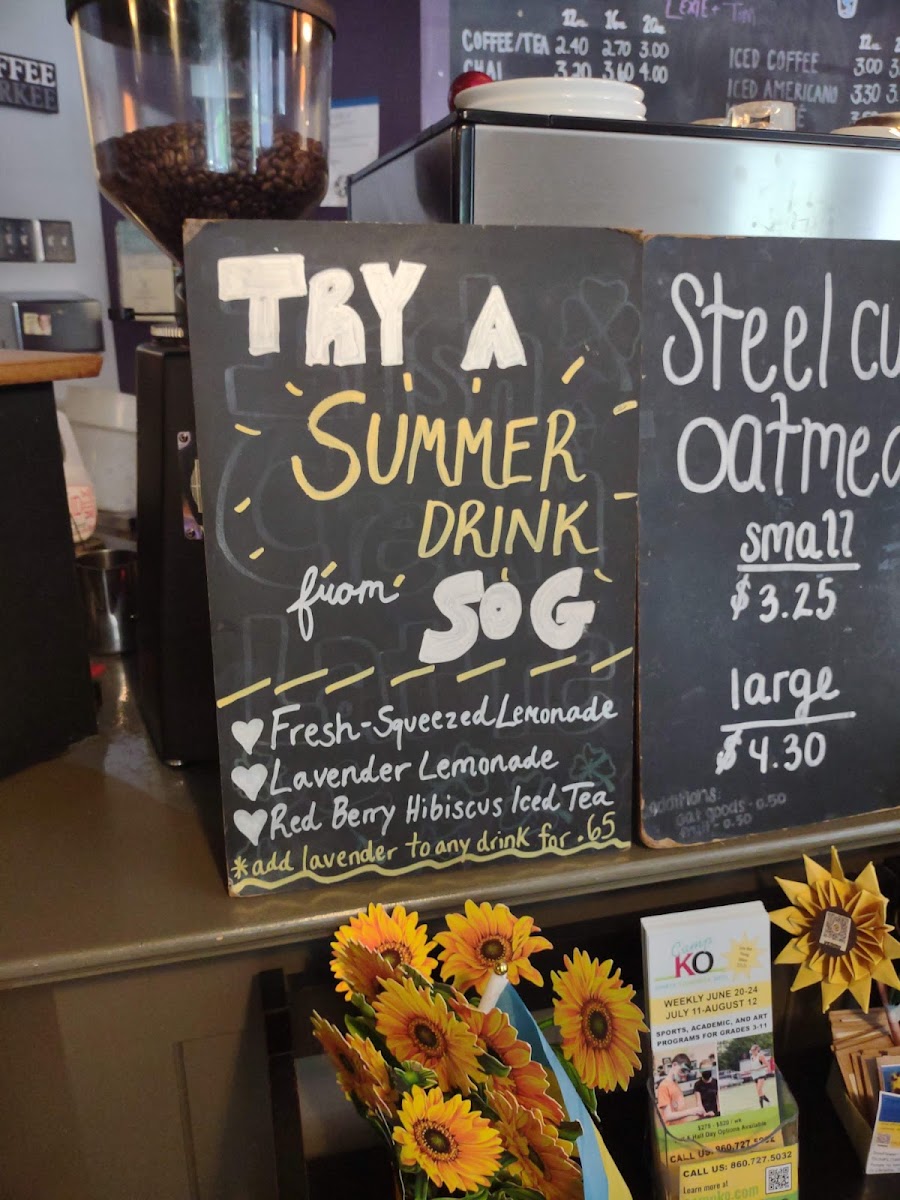 FFEE
RKEE
Lexie + Tim
12oz 16oz 20oz
COFFEE/TEA 2.40 2.70 3.00
CHAI 3.20 3.60 4.00
ICED COFFEE 3.00
ICED AMERICANO 3.30
TRY A
SUMMER
DRINK
from SOG
Fresh-Squeezed Lemonade
Lavender Lemonade
Red Berry Hibiscus Iced Tea
*add lavender to any drink for .65
Steel cu
oatmea
small
$3.25
large
$4.30
additions:
oat goods - 0.50
Camp
KO
WEEKLY JUNE 20-24
JULY 11-AUGUST 12
SPORTS, ACADEMIC, AND ART
PROGRAMS FOR GRADES 3-11
Half Day Options Available
CALL US: 860.727.5032
CALL US: 860.727.5032
Learn more at